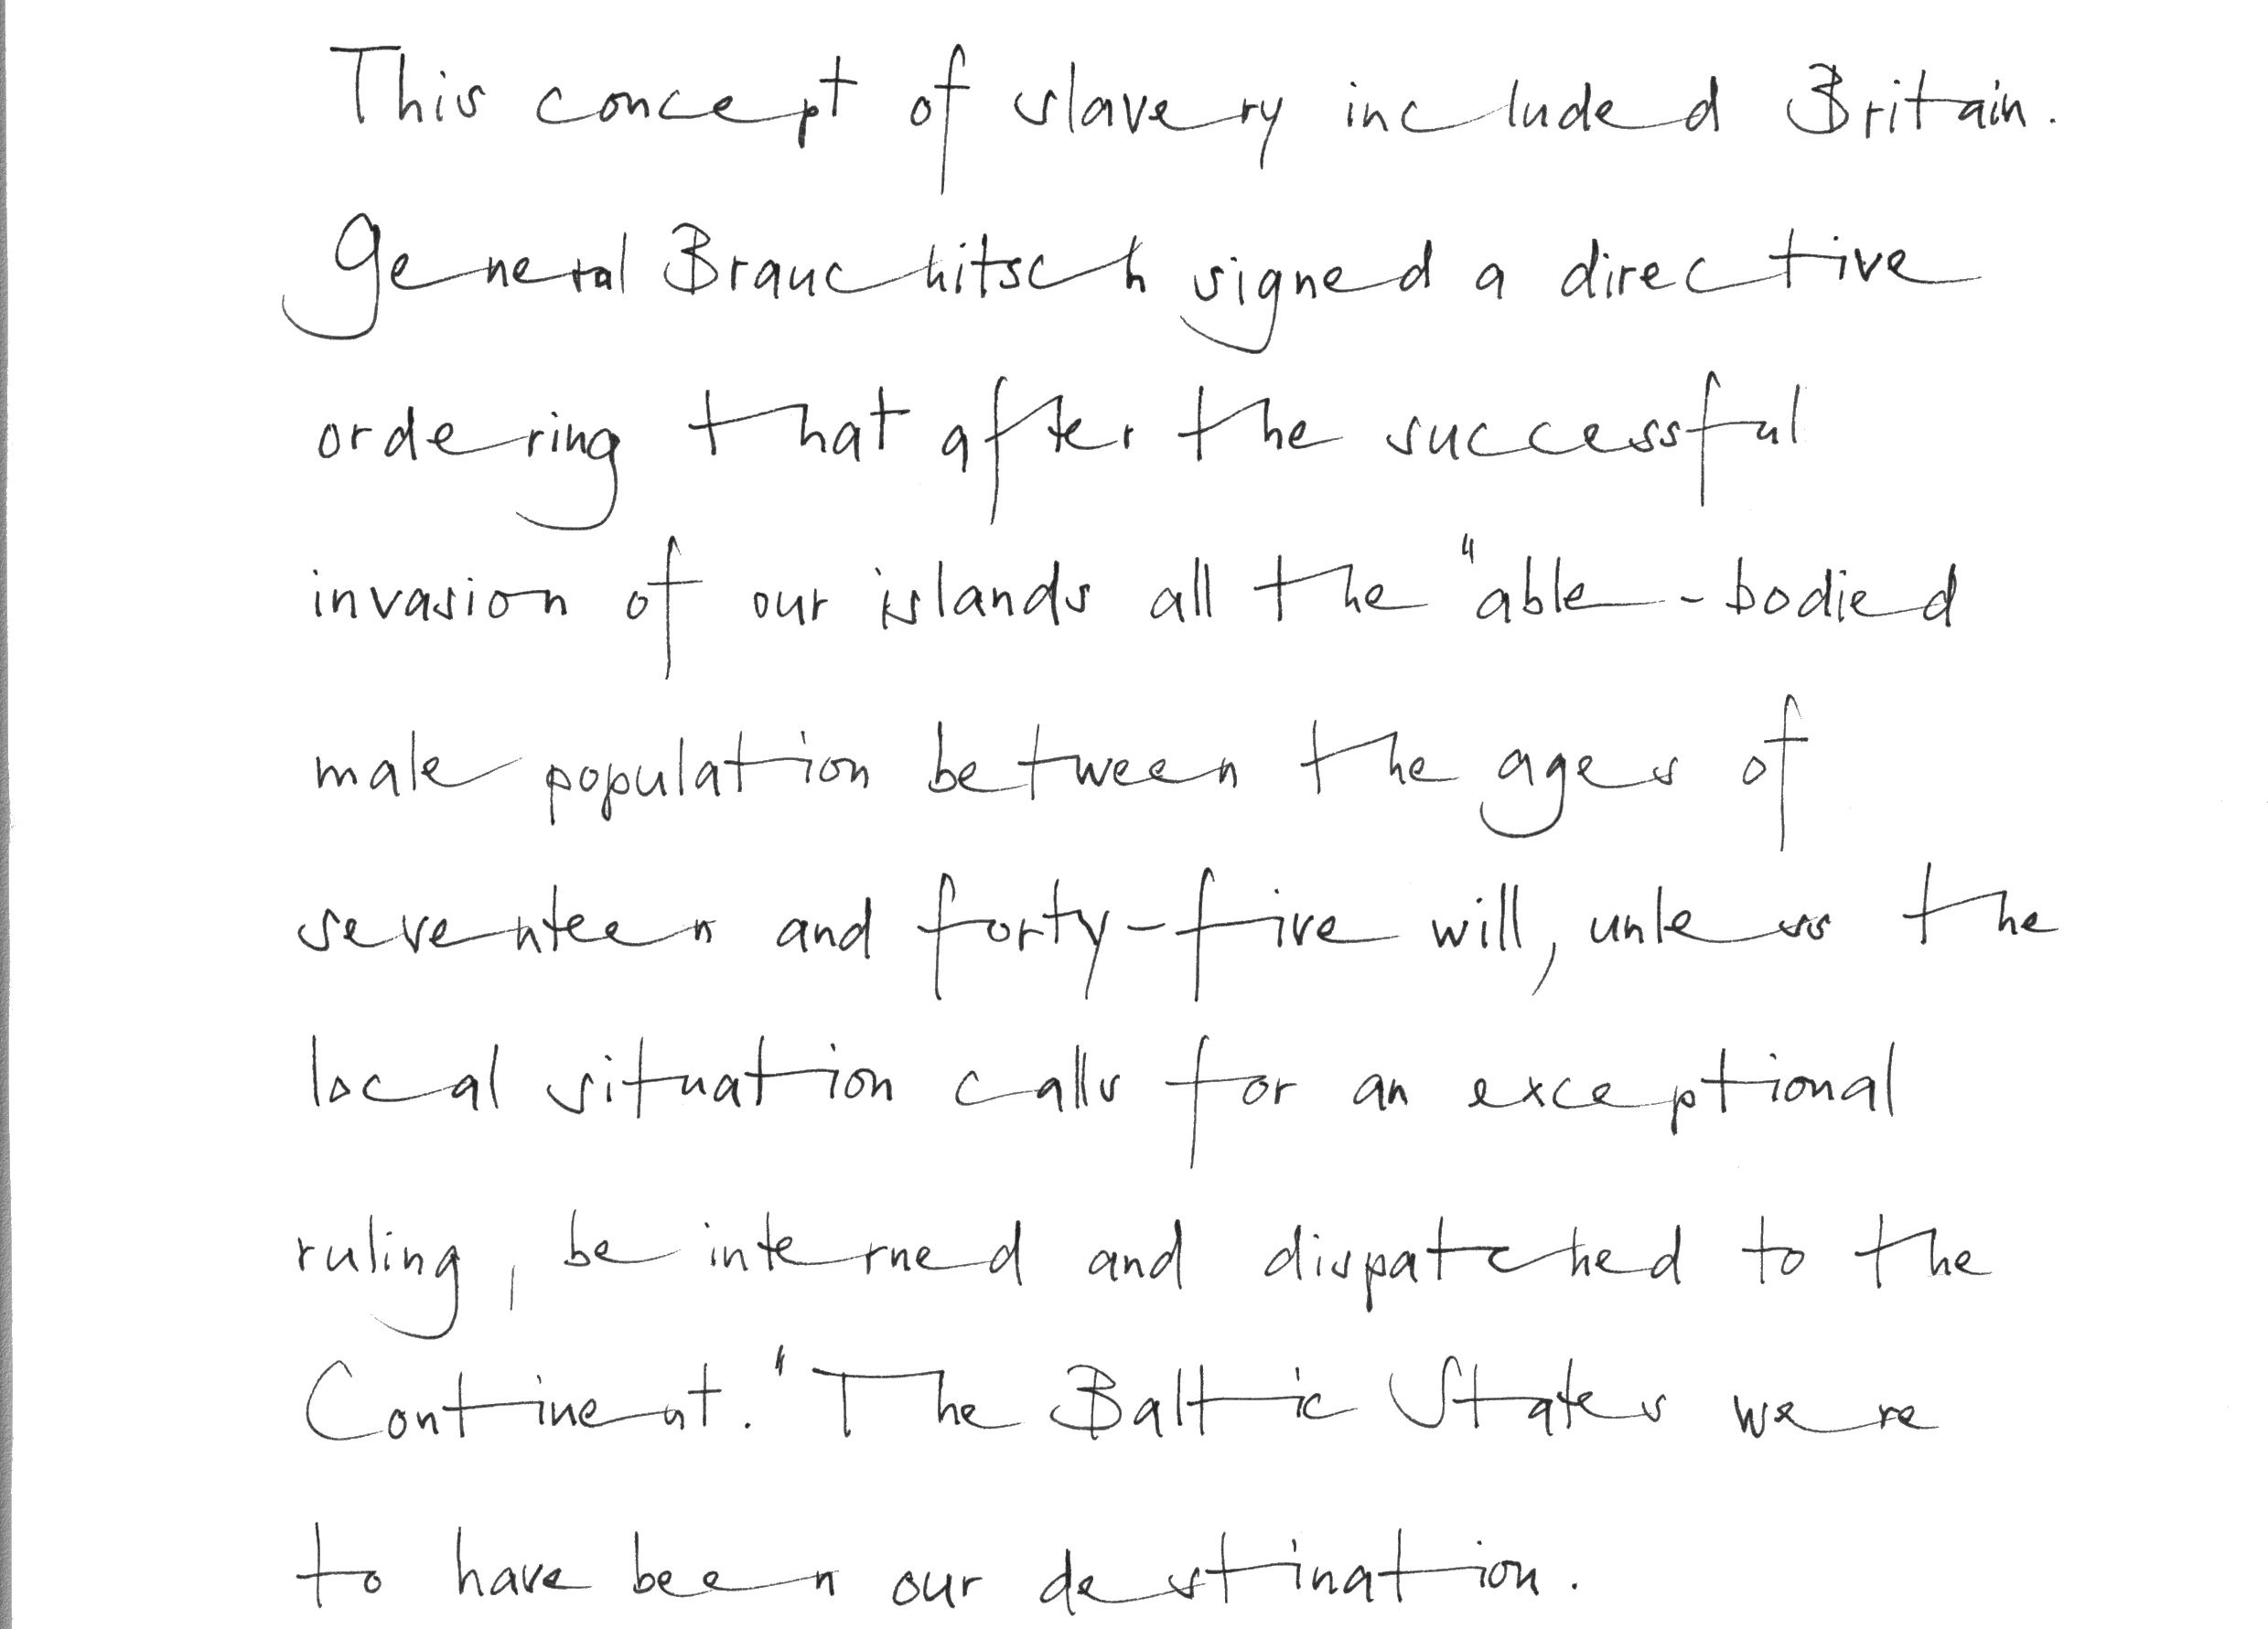 This concept of slavery included Britain.
General Brauchitsch signed a directive
ordering that after the successful
invasion of our islands all the "able-bodied
male population between the ages of
seventeen and forty-five will, unless the
local situation calls for an exceptional
ruling, be interned and dispatched to the
Continent." The Baltic States were
to have been our destination.